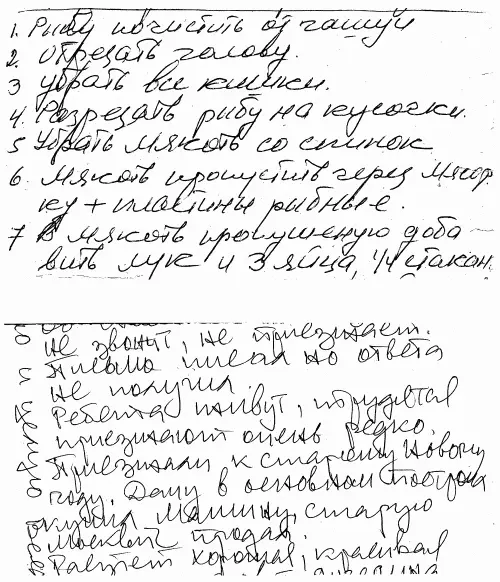 1. Рыбу почистить от чашуи
2. Отрезать голову.
3 Убрать все кишки.
4. Разрезать рыбу на кусочки.
5 Убрать мякоть со спинок
6. Мякоть пропустить через мясор
ку + пластины рыбные.
7 В мякоть пропущеную доба
вить лук и 3 яйца, 1/4 стакан.
не звонит, не приезжает.
Письмо писал но ответа
не получил.
Ребята живут, трудятся
приезжают очень редко.
Приезжали к старому Новому
году. Диму в основном
купил машину, старую
москвич продал.
Растет хорошая, красивая